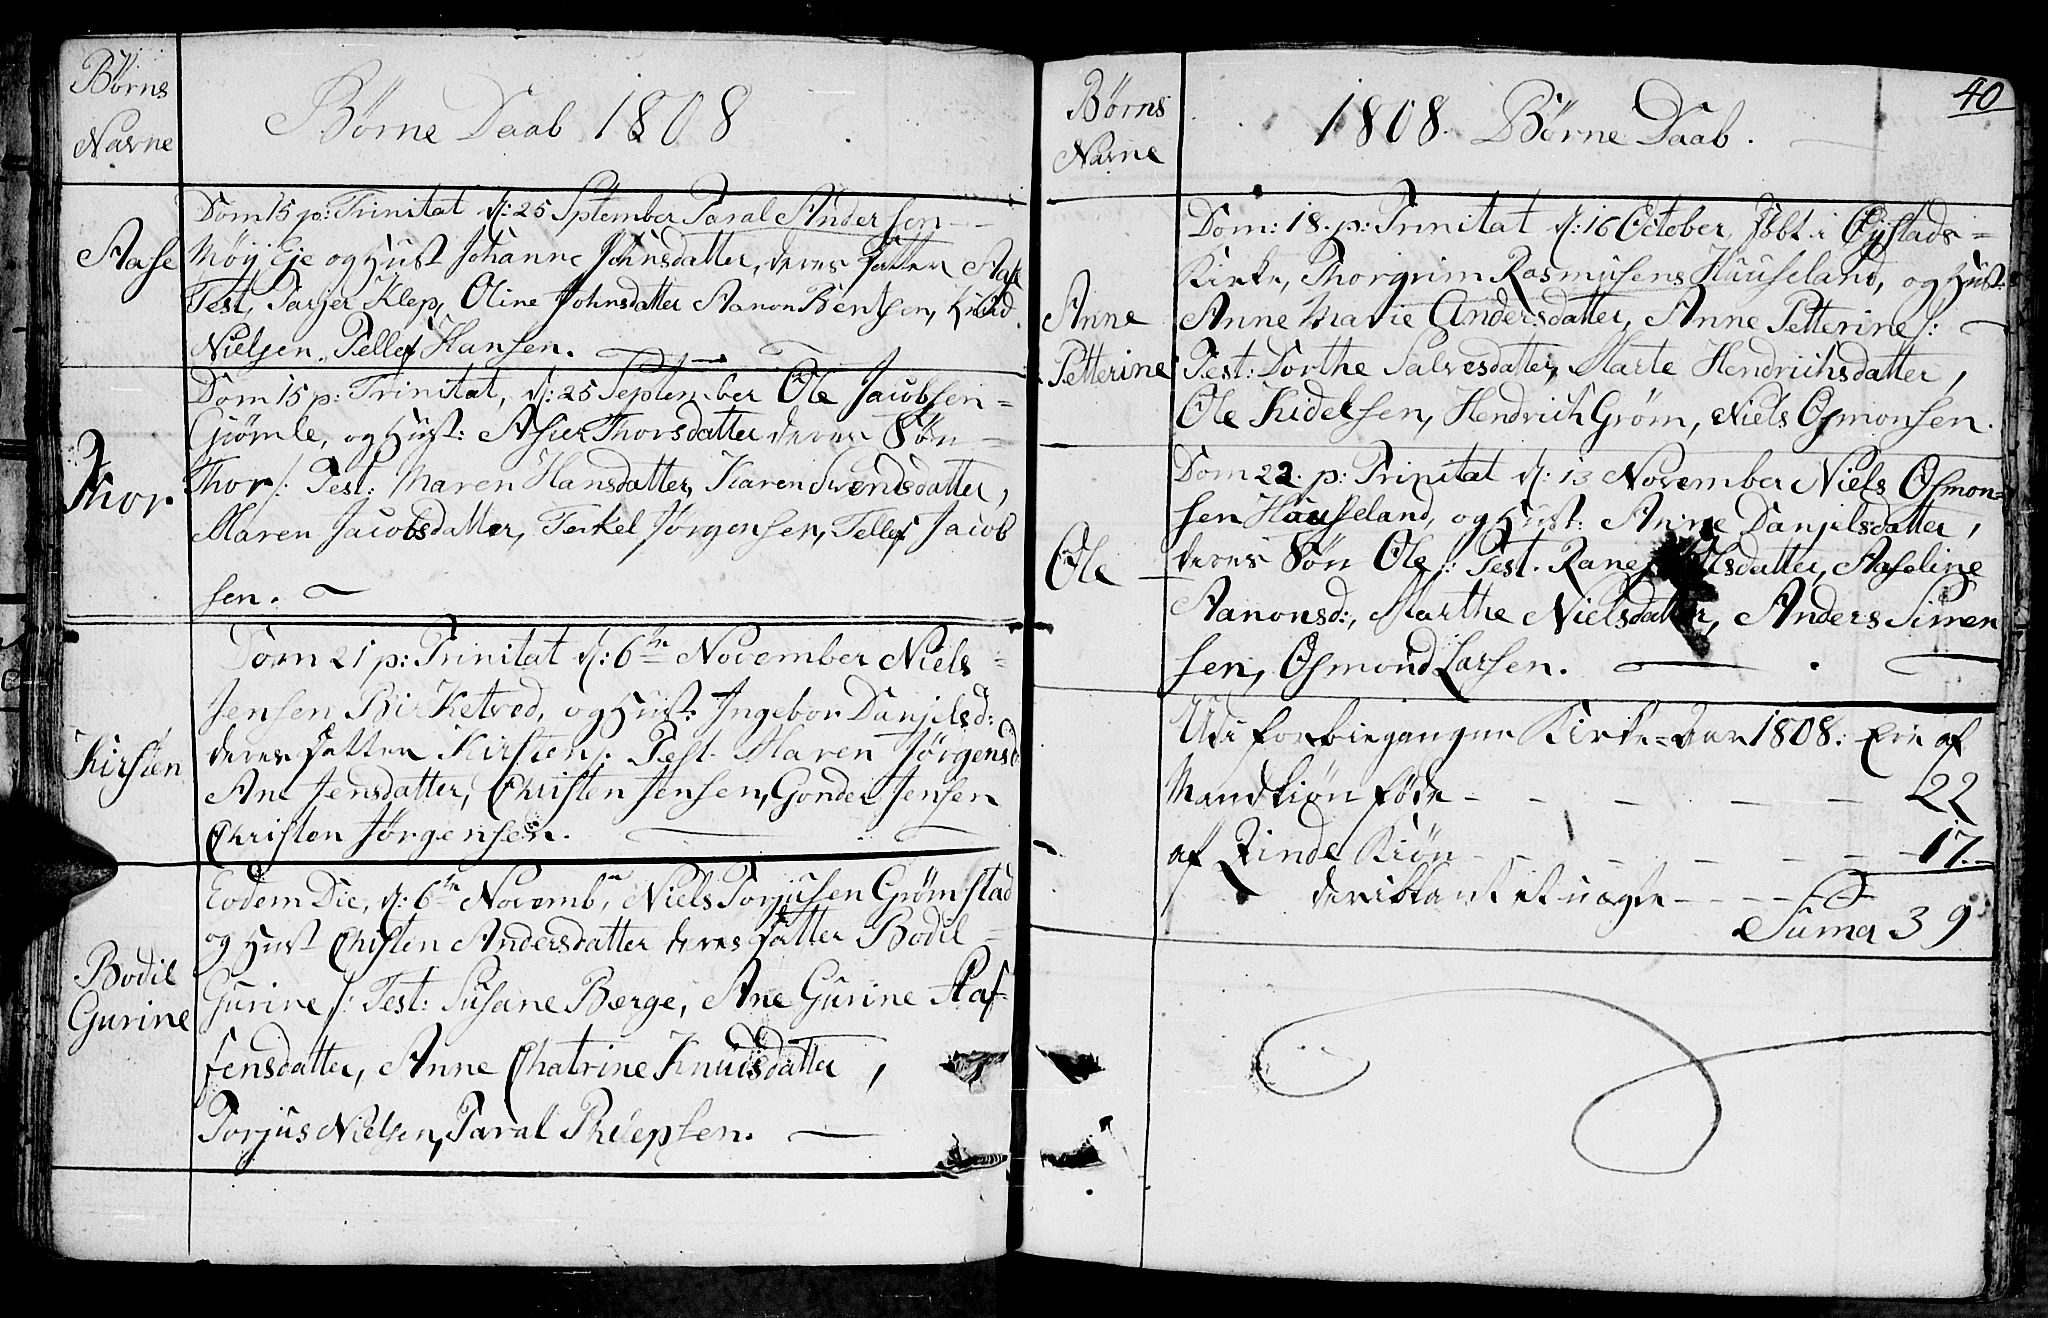 Børns
Navne
Børne Daab 1808
Aase
Dom 15 p: Trinitat d: 25 September Taral Andersen
Møy Eje og Hust Johanne Johnsdatter, deres Datter Aase
Test, Tarjer Klep, Oline Johnsdatter Aanon Bentsen, Knud
Nielsen, Tellef Hansen.
Thor
Dom 15 p: Trinitat, d: 25 September Ole Jacobsen
Gjømle, og Hust: Asier Thorsdatter deres Søn
Thor /: Test: Maren Hansdatter, Karen Svendsdatter,
Maren Jacobsdatter, Terkel Jørgensen, Tellef Jacob
sen.
Kirsten
Dom 21 p: Trinitat d: 6te November Niels
Jensen Birketved, og Hust: Ingebor Danjelsd:
deres Datter Kirsten /: Test. Maren Jørgensd
Ane Jensdatter, Christen Jensen, Gonder Jensen
Christen Jørgensen.
Bodil
Gurine
Eodem Die, d: 6te Novemb, Niels Torjusen Grømstad
og Hust Chisten Andersdatter deres Datter Bodil
Gurine /: Test: Susane Berge, Ane Gurine Staf=
fensdatter, Anne Chatrine Knudsdatter,
Torjus Nielsen, Taral Philepsen.
40
Børns
Navne
1808. Børne Daab.
Anne
Petterine
Dom: 18. p: Trinitat d: 16 October, døbt i Øystads=
Kirke, Thorgrim Rasmusens Hauseland, og Hust:
Anne Marie Andersdatter, Anne Petterine /:
Test: Dorthe Salvesdatter, Marte Hendrichsdatter,
Ole Kidelsen, Hendrich Grøm, Niels Osmonsen.
Ole
Dom 22. p: Trinitat d: 13 November Niels Osmon=
sen Hauseland, og Hust: Anne Danjelsdatter,
deres Søn Ole /: Test. Rane datter, Aaseline
Aanonsd:, Marthe Nielsdatter, Anders Simen
sen, Osmond Larsen.
Udi forbiegangne Kirke=Aar 1808: Ere af
Mandkiøn føde 22
af Qvinde Kiøn 17.
deriblant et uægte
Suma 39